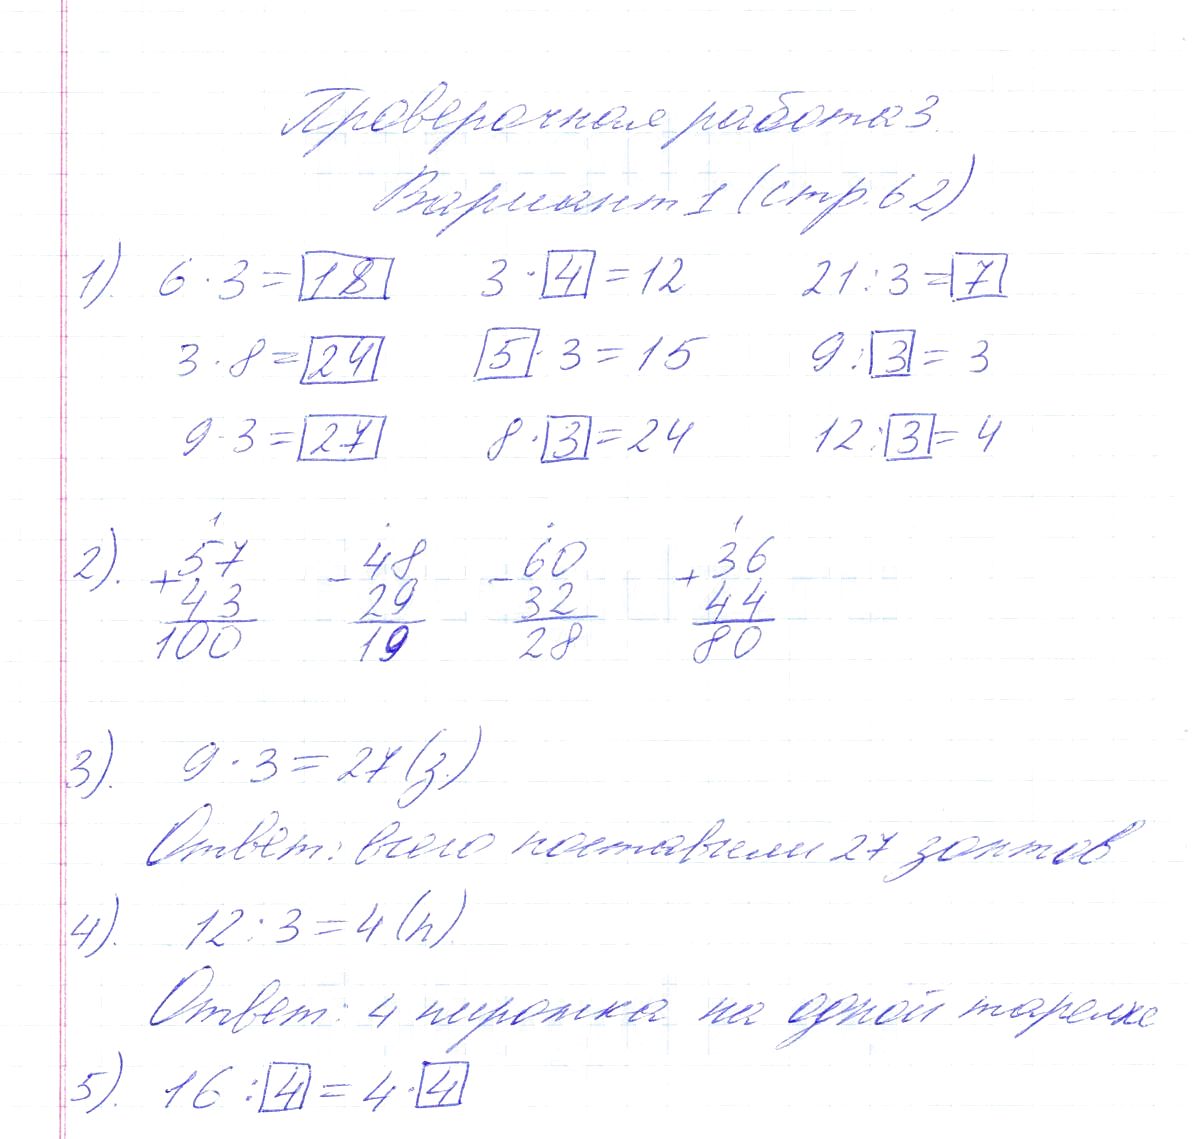 Проверочная работа 3.
Вариант 1 (стр. 62)
1). 6 · 3 = 18 3 · 4 = 12 21 : 3 = 7
3 · 8 = 24 5 · 3 = 15 9 : 3 = 3
9 · 3 = 27 8 · 3 = 24 12 : 3 = 4
1 . . 1
2). + 57 - 48 - 60 + 36
43 29 32 44
100 19 28 80
3). 9 · 3 = 27 (з.)
Ответ: всего поставили 27 зонтов
4). 12 : 3 = 4 (п).
Ответ: 4 пирожка на одной тарелке
5). 16 : 4 = 4 · 4